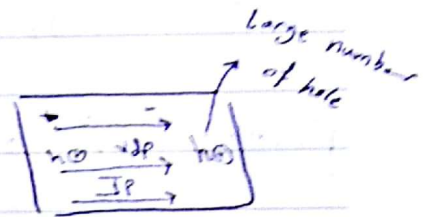 Large number
of hole
+ -
h⊕ vdp h⊕
Ip